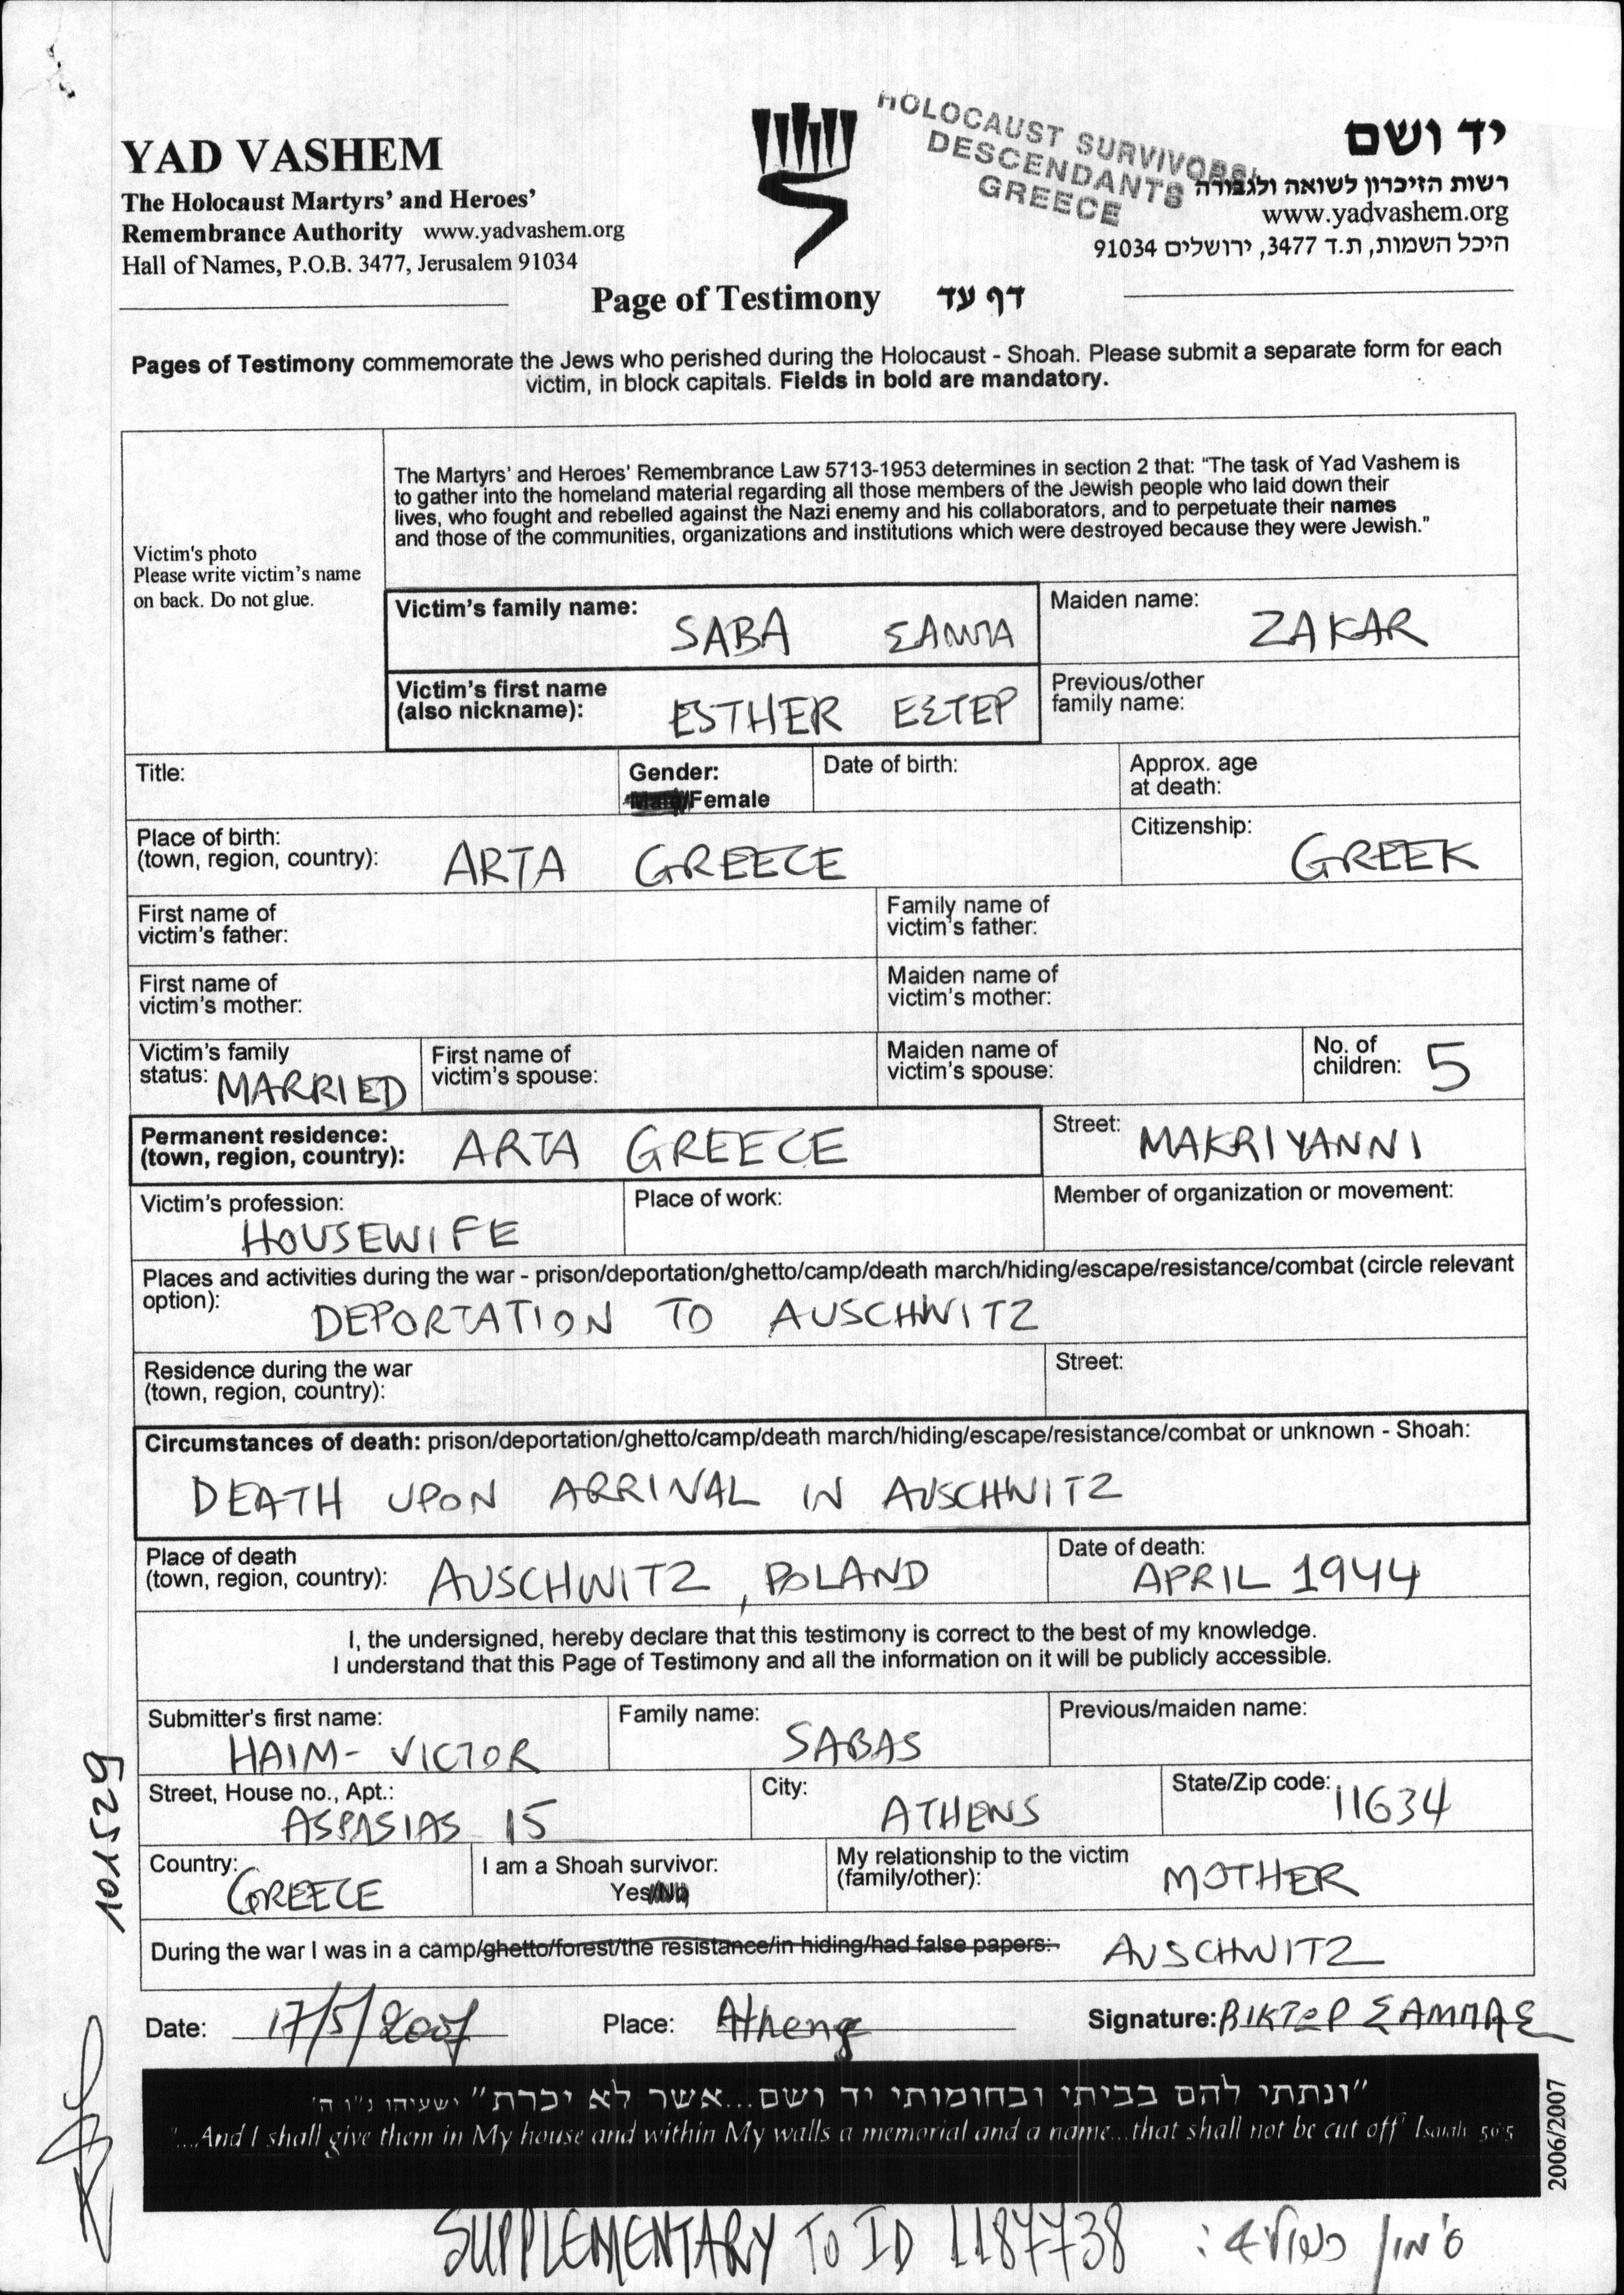 HOLOCAUST SURVIVORS'
DESCENDANTS
GREECE
YAD VASHEM
The Holocaust Martyrs' and Heroes'
Remembrance Authority www.yadvashem.org
Hall of Names, P.O.B. 3477, Jerusalem 91034
יד ושם
רשות הזיכרון לשואה ולגבורה
www.yadvashem.org
היכל השמות, ת.ד 3477, ירושלים 91034
Page of Testimony דף עד
Pages of Testimony commemorate the Jews who perished during the Holocaust - Shoah. Please submit a separate form for each
victim, in block capitals. Fields in bold are mandatory.
Victim's photo
Please write victim's name
on back. Do not glue.
The Martyrs' and Heroes' Remembrance Law 5713-1953 determines in section 2 that: "The task of Yad Vashem is
to gather into the homeland material regarding all those members of the Jewish people who laid down their
lives, who fought and rebelled against the Nazi enemy and his collaborators, and to perpetuate their names
and those of the communities, organizations and institutions which were destroyed because they were Jewish."
Victim's family name: SABA ΣΑΜΠΑ
Maiden name: ZAKAR
Victim's first name
(also nickname): ESTHER ΕΣΤΕΡ
Previous/other
family name:
Title:
Gender:
Male/Female
Date of birth:
Approx. age
at death:
Place of birth:
(town, region, country): ARTA GREECE
Citizenship: GREEK
First name of
victim's father:
Family name of
victim's father:
First name of
victim's mother:
Maiden name of
victim's mother:
Victim's family
status: MARRIED
First name of
victim's spouse:
Maiden name of
victim's spouse:
No. of
children: 5
Permanent residence:
(town, region, country): ARTA GREECE
Street: MAKRIYANNI
Victim's profession:
HOUSEWIFE
Place of work:
Member of organization or movement:
Places and activities during the war - prison/deportation/ghetto/camp/death march/hiding/escape/resistance/combat (circle relevant
option): DEPORTATION TO AUSCHWITZ
Residence during the war
(town, region, country):
Street:
Circumstances of death: prison/deportation/ghetto/camp/death march/hiding/escape/resistance/combat or unknown - Shoah:
DEATH UPON ARRIVAL IN AUSCHWITZ
Place of death
(town, region, country): AUSCHWITZ, POLAND
Date of death:
APRIL 1944
I, the undersigned, hereby declare that this testimony is correct to the best of my knowledge.
I understand that this Page of Testimony and all the information on it will be publicly accessible.
Submitter's first name:
HAIM-VICTOR
Family name:
SABAS
Previous/maiden name:
Street, House no., Apt.:
ASPASIAS 15
City:
ATHENS
State/Zip code: 11634
Country:
GREECE
I am a Shoah survivor:
Yes/No
My relationship to the victim
(family/other): MOTHER
During the war I was in a camp/ghetto/forest/the resistance/in hiding/had false papers: AUSCHWITZ
Date: 17/5/2007 Place: Athens Signature: ΒΙΚΤΩΡ ΣΑΜΠΑΣ
"ונתתי להם בביתי ובחומותי יד ושם...אשר לא יכרת" ישעיהו נ"ו ה'
"...And I shall give them in My house and within My walls a memorial and a name...that shall not be cut off" Isaiah 56:5
2006/2007
101529
SUPPLEMENTARY TO ID 1187738